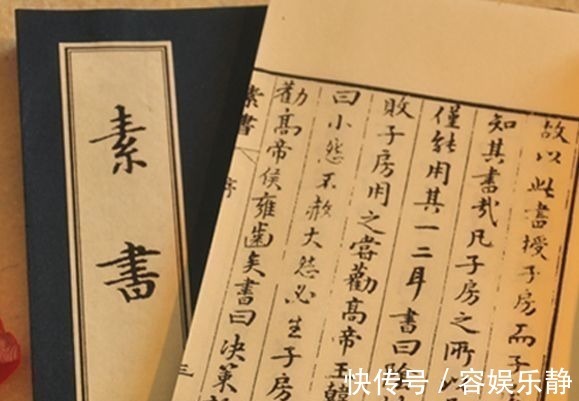 素書
故以此書授子房而子
知其書哉凡子房之所以
僅能用其一二耳書曰陰
敗子房用之嘗勸高帝王韓
曰小怨不赦大怨必生子房
勸高帝侯雍齒矣書曰决策
素書 序 三
快传号 / 容娱乐静